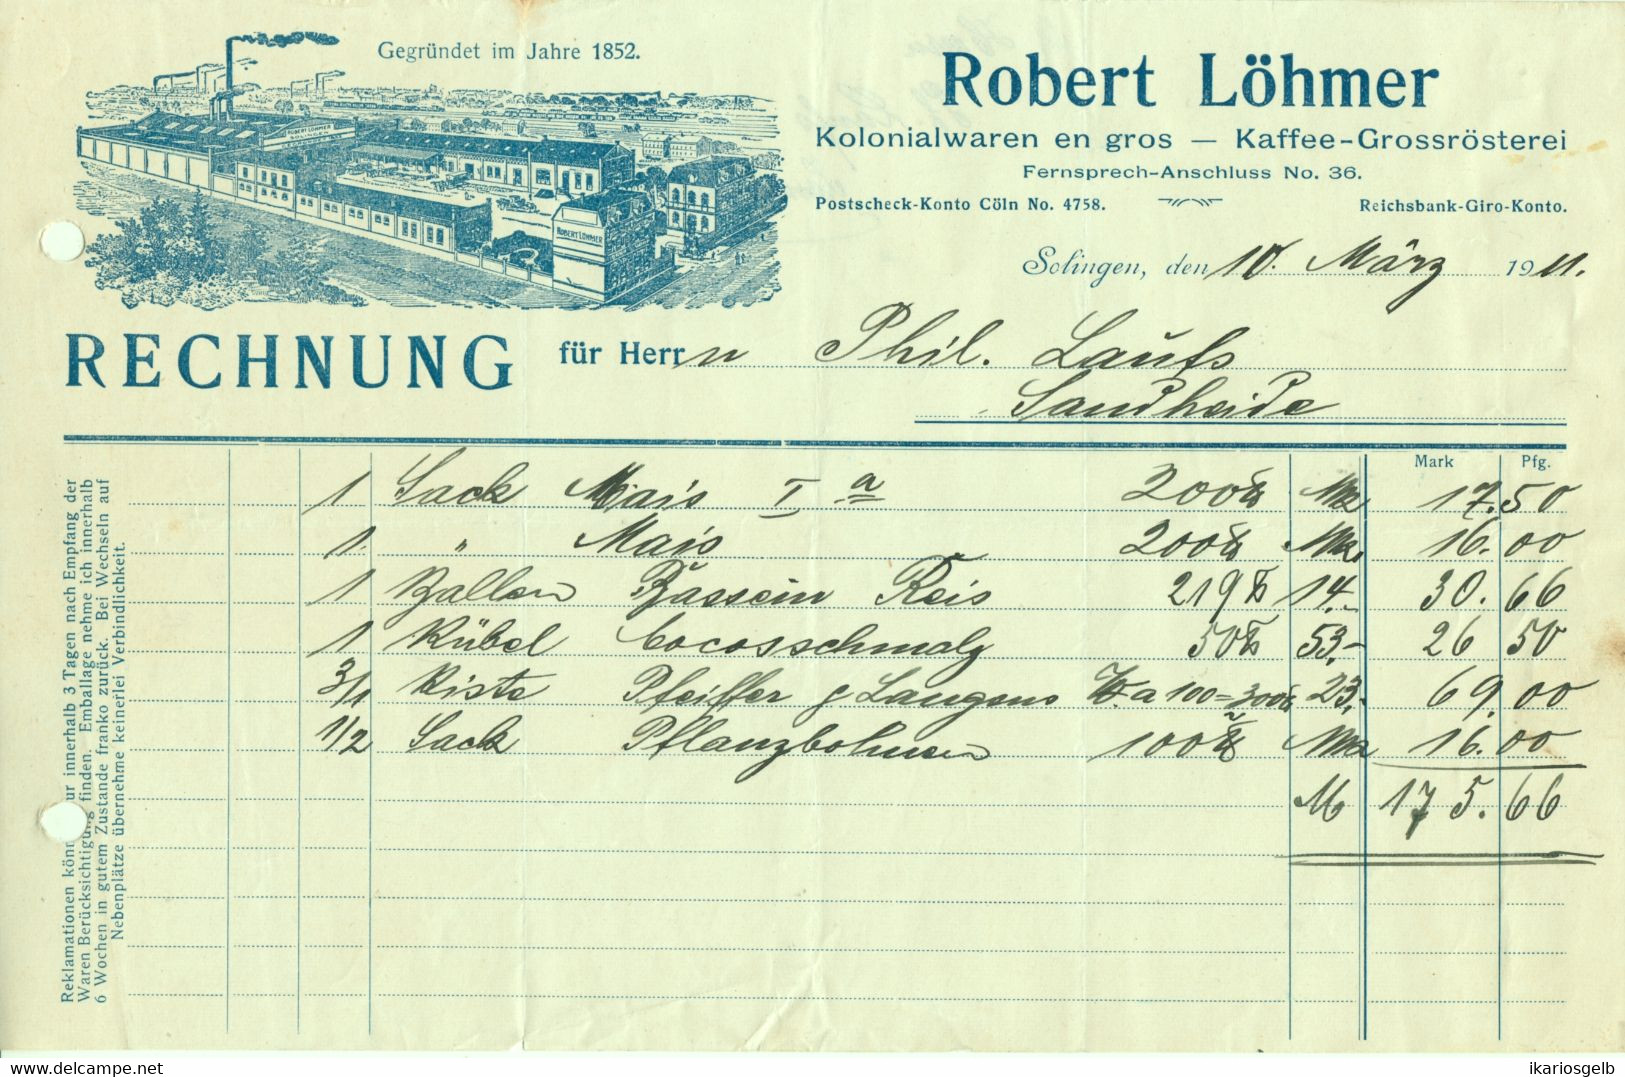 Gegründet im Jahre 1852.
ROBERT LÖHMER
SOLINGEN
ROBERT LÖHMER
Robert Löhmer
Kolonialwaren en gros — Kaffee-Grossrösterei
Fernsprech-Anschluss No. 36.
Postscheck-Konto Cöln No. 4758.
Reichsbank-Giro-Konto.
Solingen, den 10. März 1911.
RECHNUNG für Herrn Phil. Laufs
Sandheide
Mark Pfg.
1 Sack Mais Ia 200 ℔ 17.50
1 " Mais 200 ℔ 16.00
1 Ballen Bassein Reis 219 ℔ 14.- 30.66
1 Kübel Cocosschmalz 50 ℔ 53.- 26 50
3/1 Kiste Pfeiffer & Langens a 100 = 300 ℔ 23.- 69.00
1/2 Sack Pflanzbohnen 100 ℔ 16.00
M 175.66
Reklamationen könn ur innerhalb 3 Tagen nach Empfang der
Waren Berücksichtigung finden. Emballage nehme ich innerhalb
6 Wochen in gutem Zustande franko zurück. Bei Wechseln auf
Nebenplätze übernehme keinerlei Verbindlichkeit.
www.delcampe.net
ikariosgelb